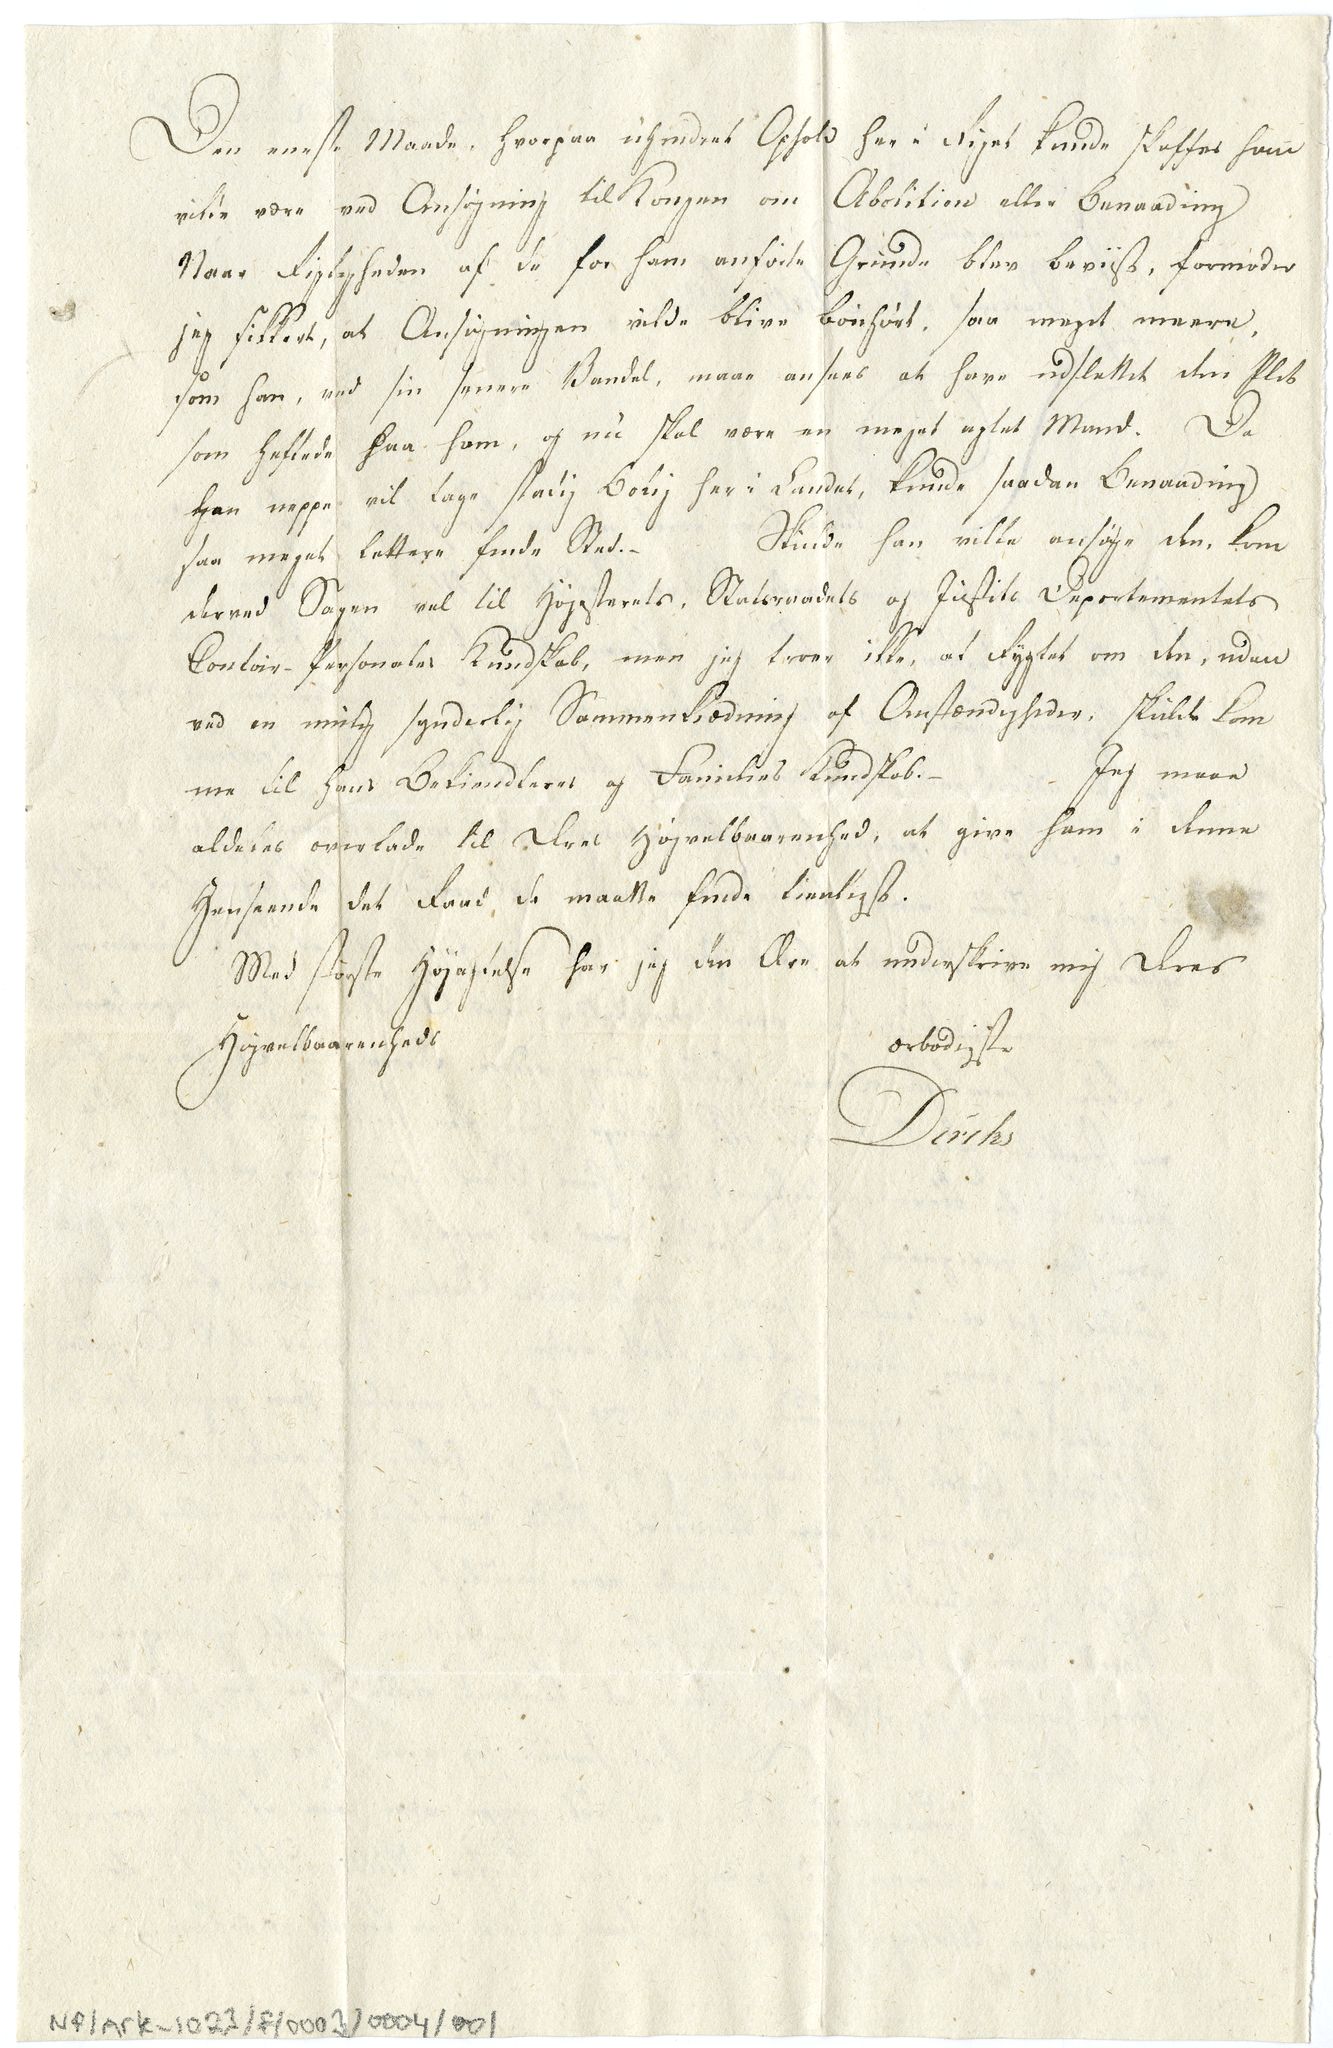 Den eneste Maade, hvorpaa uhindret Ophold her i Riget kunde skaffes ham
vilde være ved Ansøgning til Kongen om Abolition eller Benaading
Naar Rigtigheden af de for ham anførte Grunde blev beviist, formoder
jeg sikkert, at Ansøgningen vilde blive bønhørt, saa meget meere,
som han, ved sin senere Vandel, maae ansees at have udslettet den Plet
som heftede paa ham, og nu skal være en meget agtet Mand. Da
han neppe vil tage stadig Bolig her i Landet, kunde saadan Benaading
saa meget lettere finde Sted.- Skulde han ville ansøge den, kom
derved Sagen vel til Høyesterets, Statsraadets og Justits Departementets
Contoir-Personales Kundskab, men jeg troer ikke, at Rygtet om den, uden
ved en mulig synderlig Sammenkædning af Omstændigheder, skulde kom
me til hans Bekiendteres og Families Kundskab.- Jeg maae
aldeles overlade til Deres Høyvelbaarenhed, at give ham i denne
Henseende det Raad, De maatte finde tienligst.
Med største Høyagtelse har jeg den Ære at underskrive mig Deres
Høyvelbaarenheds ærbødigste
Diriks
NA/Ark-1023/F/0003/0004/001